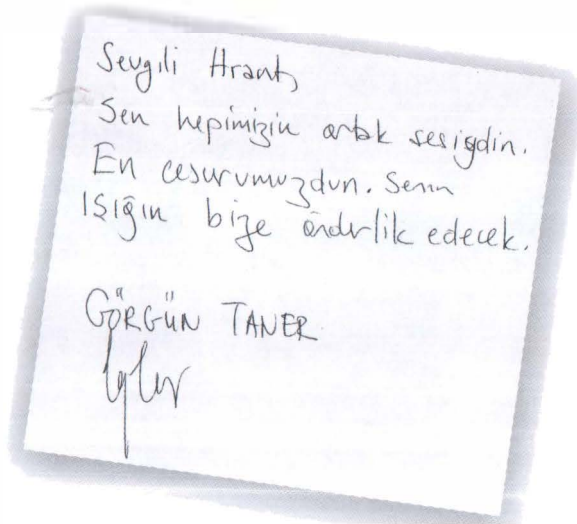 Sevgili Hrant,
Sen hepimizin ortak sesiydin.
En cesurumuzdun. Senin
Işığın bize önderlik edecek.
GÖRGÜN TANER